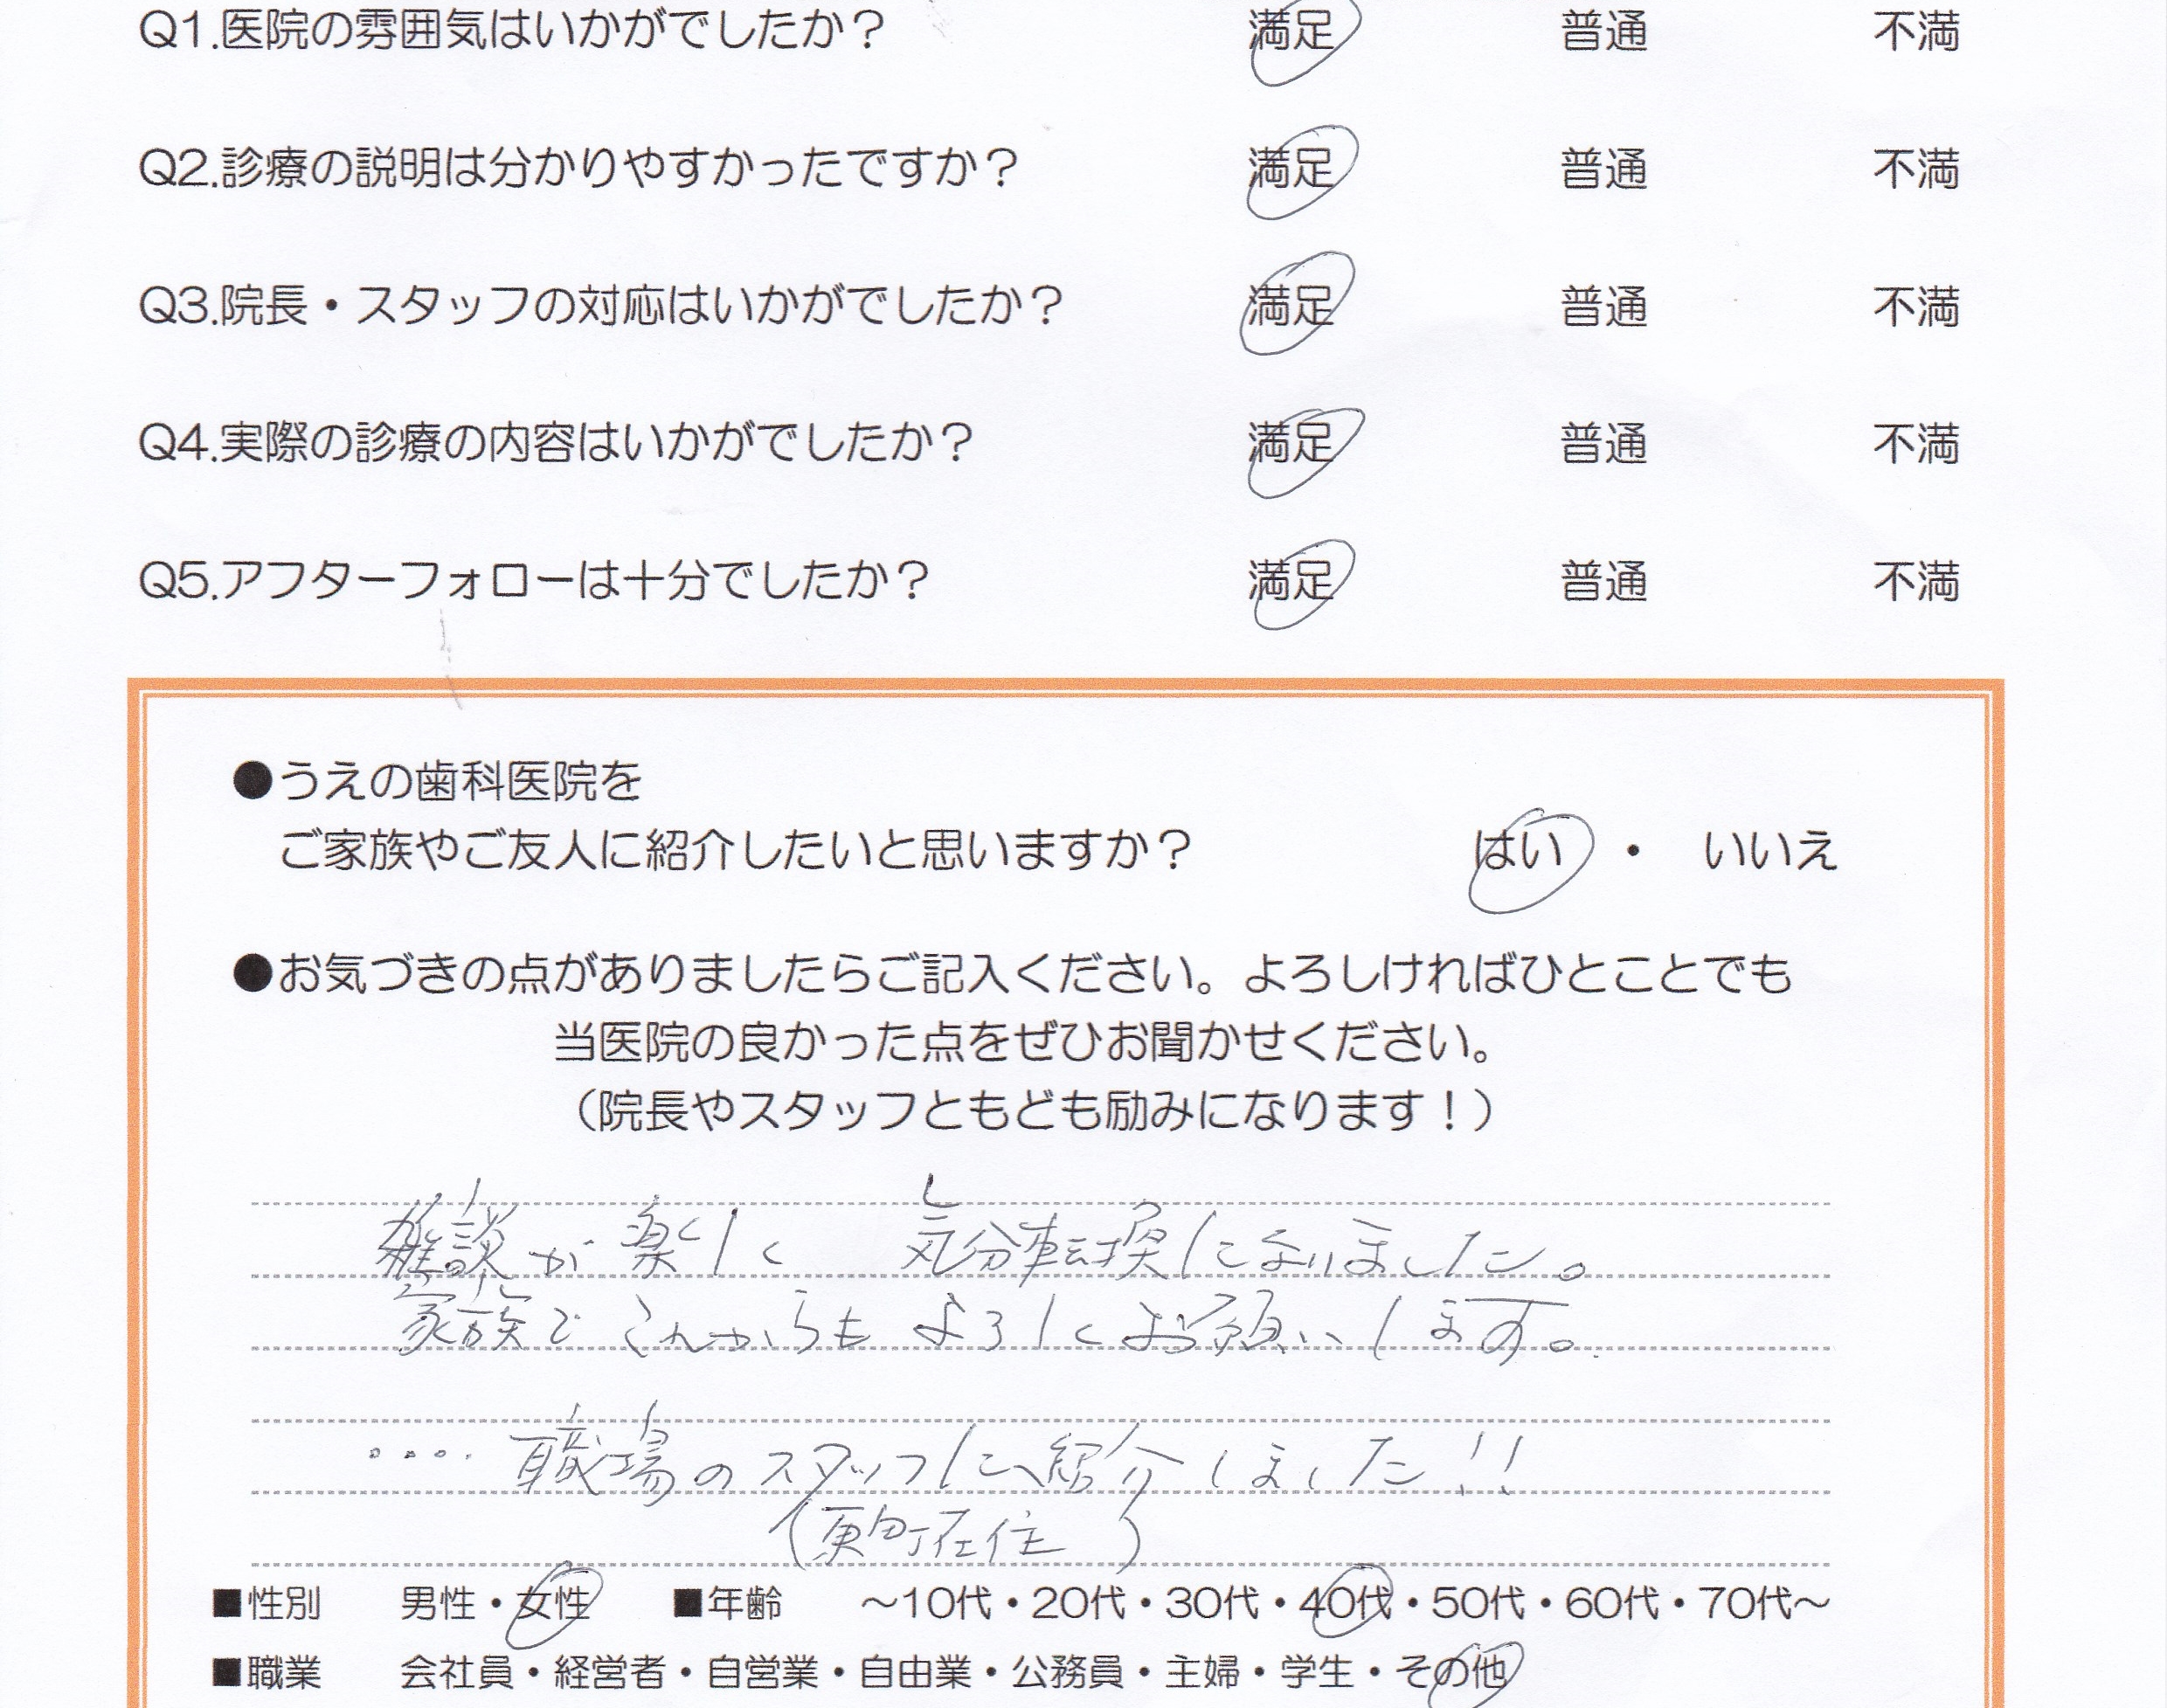 Q1.医院の雰囲気はいかがでしたか？ 満足 普通 不満
Q2.診療の説明は分かりやすかったですか？ 満足 普通 不満
Q3.院長・スタッフの対応はいかがでしたか？ 満足 普通 不満
Q4.実際の診療の内容はいかがでしたか？ 満足 普通 不満
Q5.アフターフォローは十分でしたか？ 満足 普通 不満
●うえの歯科医院を
ご家族やご友人に紹介したいと思いますか？ はい ・ いいえ
●お気づきの点がありましたらご記入ください。よろしければひとことでも
当医院の良かった点をぜひお聞かせください。
（院長やスタッフともども励みになります！）
雑談が楽しく 気分転換になりました。
家族でこれからもよろしくお願いします。
・・・・職場のスタッフに紹介しました!!
町在住
■性別 男性・女性 ■年齢 ～10代・20代・30代・40代・50代・60代・70代～
■職業 会社員・経営者・自営業・自由業・公務員・主婦・学生・その他